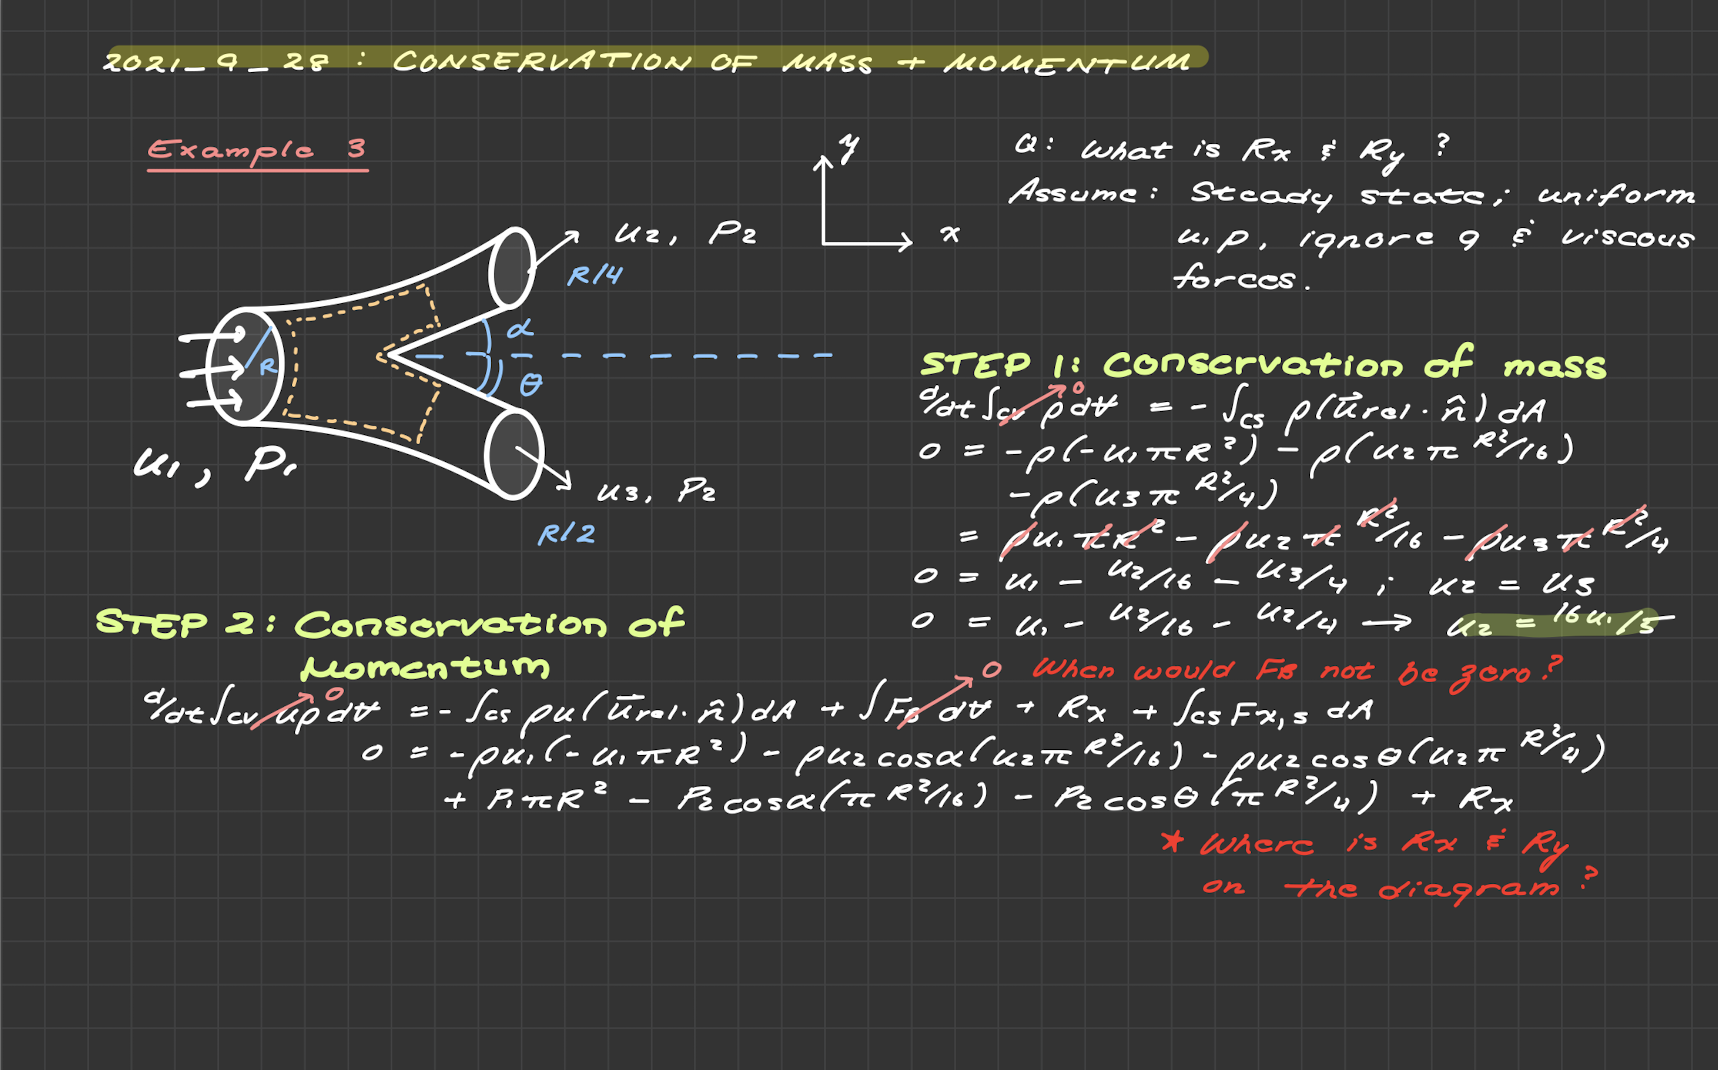 2021_9_28 : CONSERVATION OF MASS + MOMENTUM
Example 3
y
x
Q: What is Rx & Ry ?
Assume: Steady state; uniform
u, p, ignore g & viscous
forces.
u2, P2
R/4
α
R
θ
u1, P1
u3, P2
R/2
STEP 1: Conservation of mass
d/dt ∫cv ρ dV = - ∫cs ρ(u⃗rel · n̂) dA
0
0 = -ρ(-u1πR²) - ρ(u2π R²/16)
-ρ(u3π R²/4)
= ρu1πR² - ρu2π R²/16 - ρu3π R²/4
0 = u1 - u2/16 - u3/4 ; u2 = u3
0 = u1 - u2/16 - u2/4 → u2 = 16u1/5
STEP 2: Conservation of
Momentum
0 When would FB not be zero?
d/dt ∫cv uρ dV = - ∫cs ρu(u⃗rel · n̂) dA + ∫FB dV + Rx + ∫cs Fx,s dA
0
0 = -ρu1(-u1πR²) - ρu2cosα(u2π R²/16) - ρu2cosθ(u2π R²/4)
+ P1πR² - P2cosα(π R²/16) - P2cosθ(π R²/4) + Rx
* Where is Rx & Ry
on the diagram?